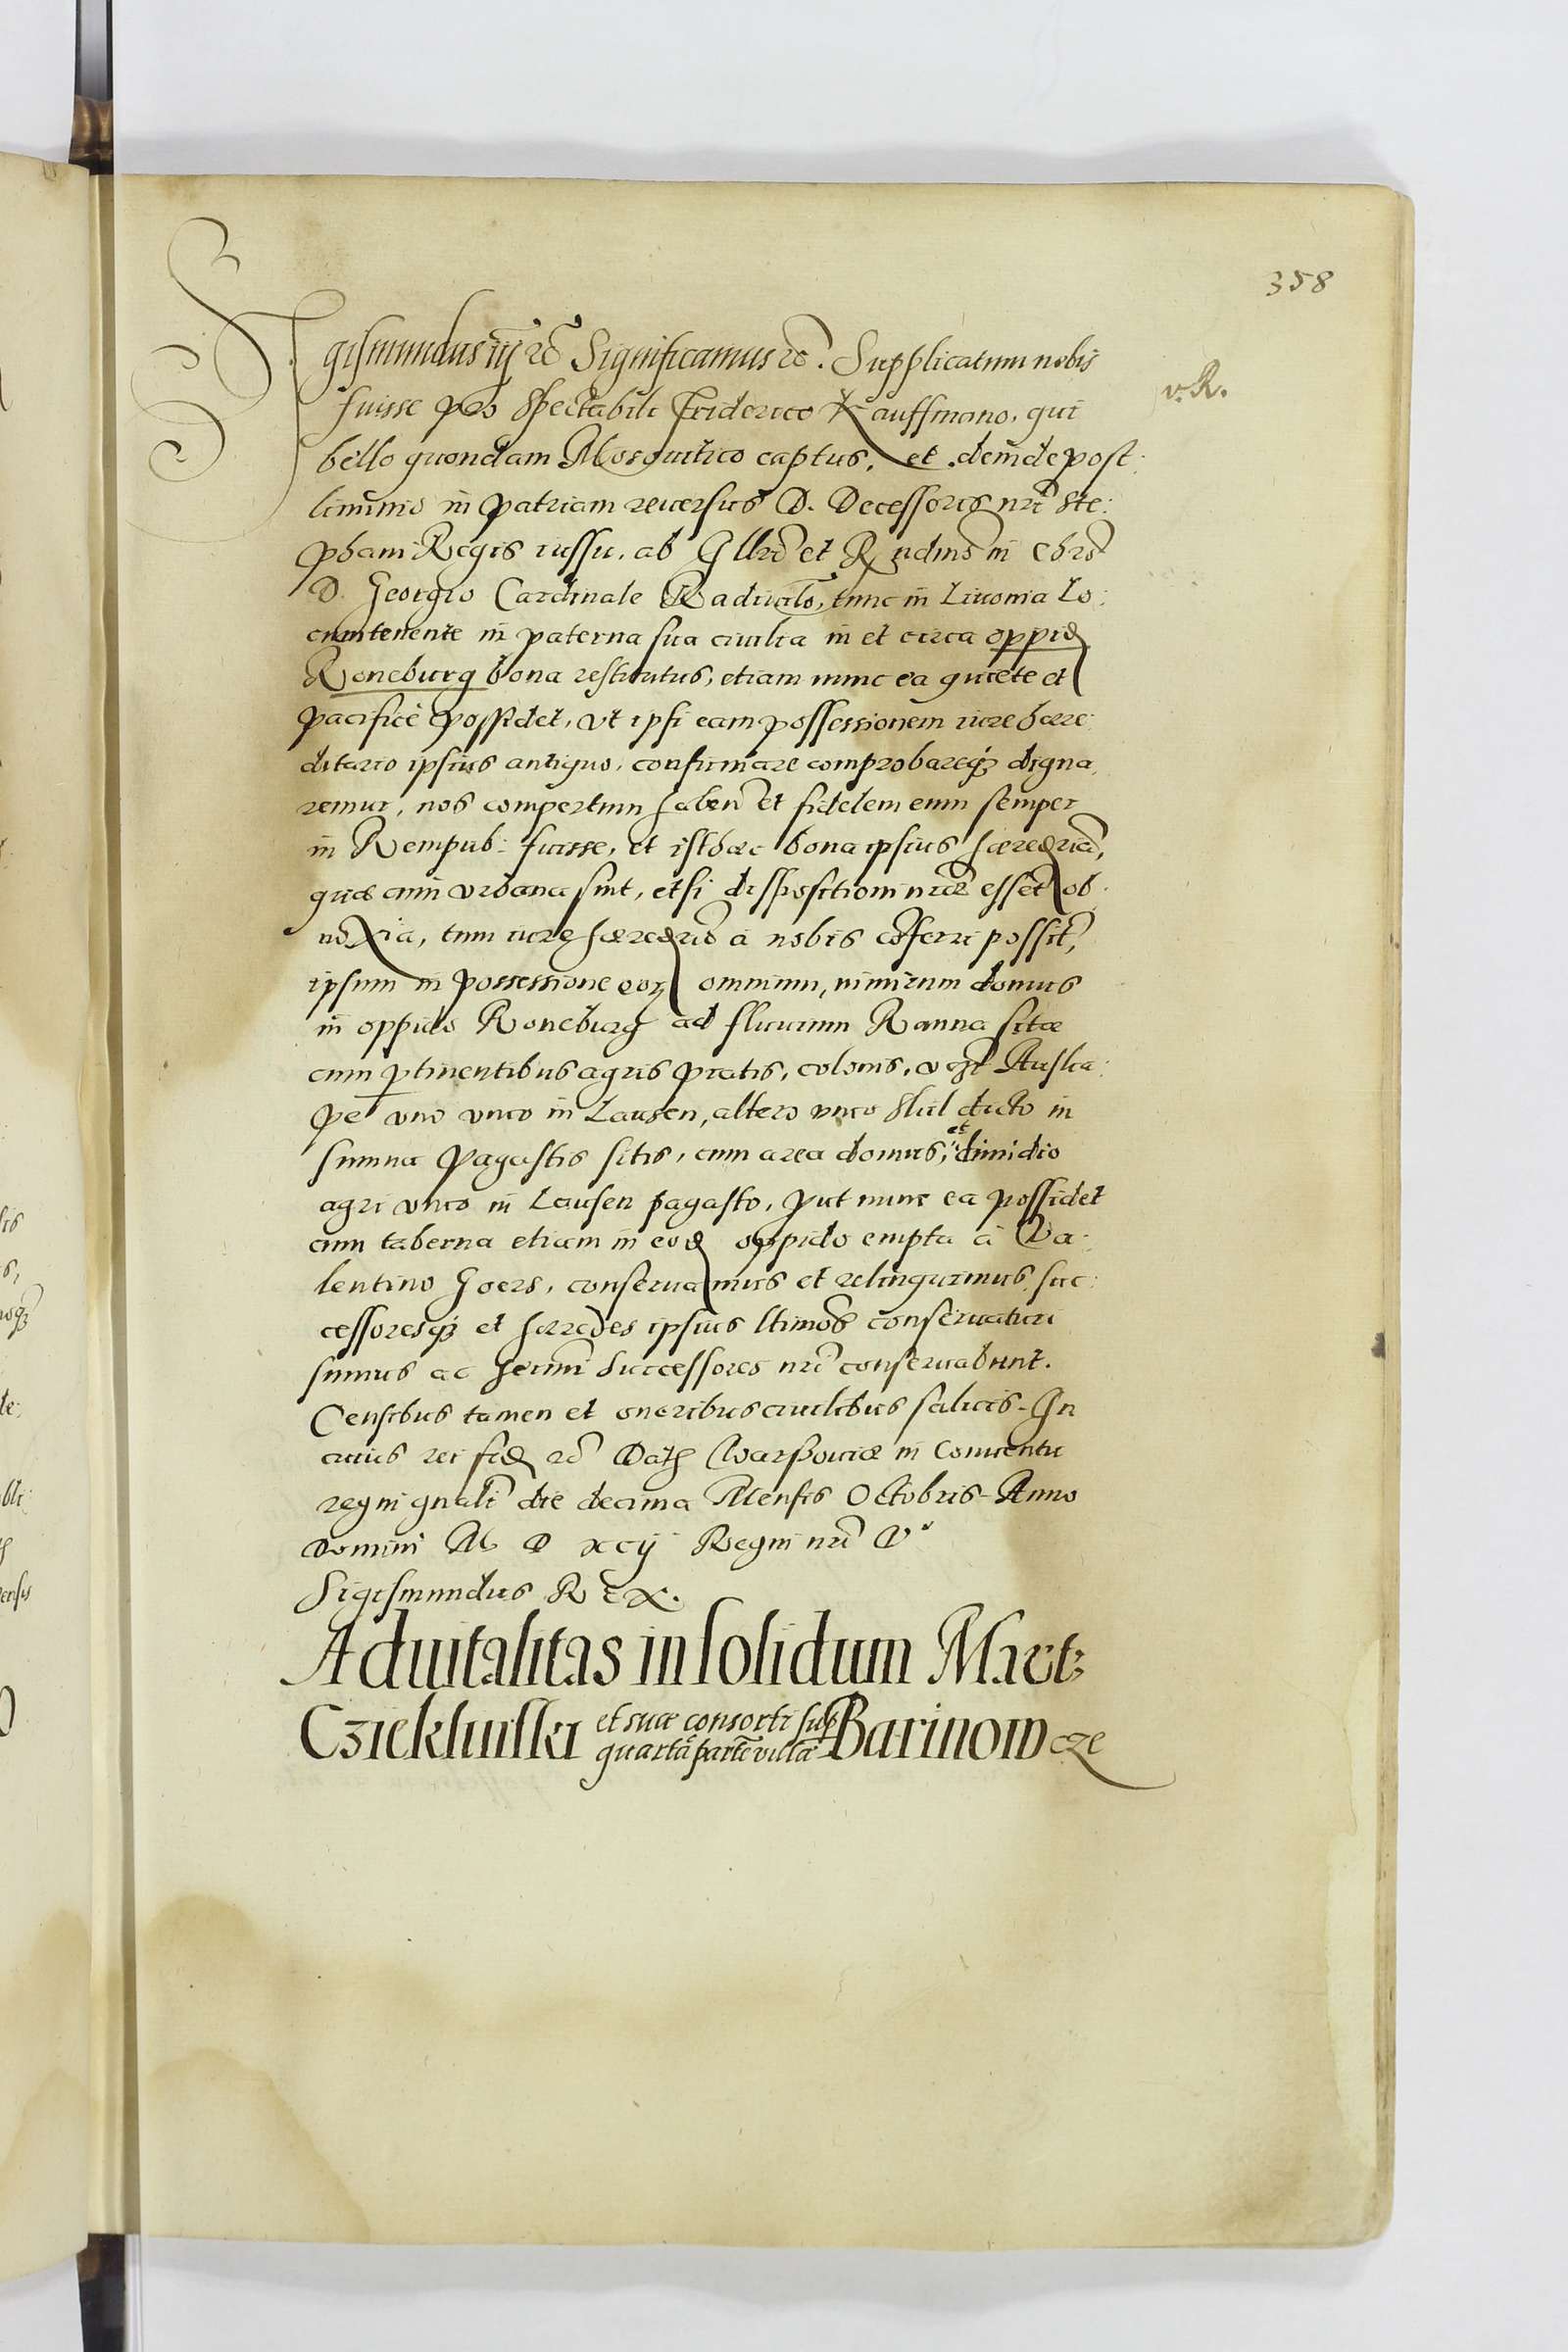 358
Sigismundus iij rc̃ Significamus rc̃. Supplicatum nobis
v. R.
fuisse pro Spectabili Friderico Kauffmano, qui
bello quondam Mosquitico captus, et deinde post:
liminio in patriam reuersus D. Decessoris nr̃i Ste:
phani Regis iussu, ab Illr̃o et Rendmo in Chro
D. Georgio Cardinale Radiuilo, tunc in Liuonia Lo:
cumtenente in paterna sua ciuilia in et circa oppid
Roneburg bona restitutus, etiam nunc ea quiete et
pacificè possidet, vt ipsi eam possessionem iure hære:
ditario ipsius antiquo, confirmare comprobareq3 digna,
remur, nos compertum haben̄ et fidelem eum semper
in Rempub: fuisse, et isthæc bona ipsius hæredria,
quæ cum vrbana sint, etsi dispositioni nr̃æ essent ob
noxia, tum iure hæredrio a nobis cõferri possit,
ipsum in possessione eorẓ omnium, nimirum domus
in oppido Roneburg ad fluuium Ranna sitæ
cum ptinentibus agris pratis, colonis, Auslia:
pe vno vnco in Lausen, altero vnco Stul dicto in
summa Pagastis sitis, cum area domus, et dimidio
agri vnco in Lausen pagasto, put nunc ea possidet
cum taberna etiam in eod oppido empta à Va:
lentino Hoers, conseruamus et relinquimus, suc:
cessoresq3 et hæredes ipsius ltimos conseruaturi
sumus ac Sermi Successores nr̃i conseruabunt.
Censibus tamen et oneribus ciuilibus saluis. In
cuius rei fid rc̃ Dat Warssouiæ in Conuentu
regni gnali die decima Mensis Octobris Anno
Domini M D xcij Regni nr̃i Vº
Sigismundus Rex.
Aduitalitas in solidum Mart:
Cziekluiski et suæ consorti sup quartã partẽ villæ Barinowcze